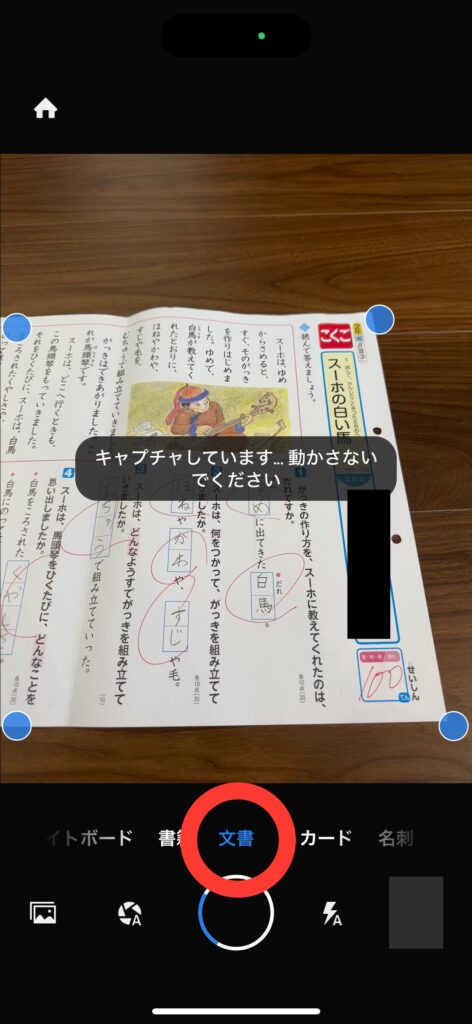 キャプチャしています... 動かさない
でください
こくご
2年
スーホの白い馬
せいしん
100
てん
読んで答えましょう。
スーホは、ゆめ
からさめると、
すぐ、そのがっき
を作りはじめま
した。ゆめで、
白馬が教えてく
れたとおりに、
ほねやかわや、
すじや毛を、
むちゅうで組み立てていきま
がっきはできあがりました。こ
れが馬頭琴です。
スーホは、どこへ行くときも、
この馬頭琴をもっていきました。
それをひくたびに、スーホは、白馬
ころされたくやしさや、
がっきの作り方を、スーホに教えてくれたのは、
だれですか。
めに出てきた 白馬。
だれ
各10点
スーホは、何をつかって、がっきを組み立てて
ましたか。
ほねやかわや、すじや毛。
各10点
スーホは、どんなようすでがっきを組み立てて
いきましたか。
ちゅうで組み立てていった。
4
スーホは、馬頭琴をひくたびに、どんなことを
思い出しましたか。
各10点
白馬をころされた
くやしさ
白馬にのって
イトボード
書籍
文書
カード
名刺